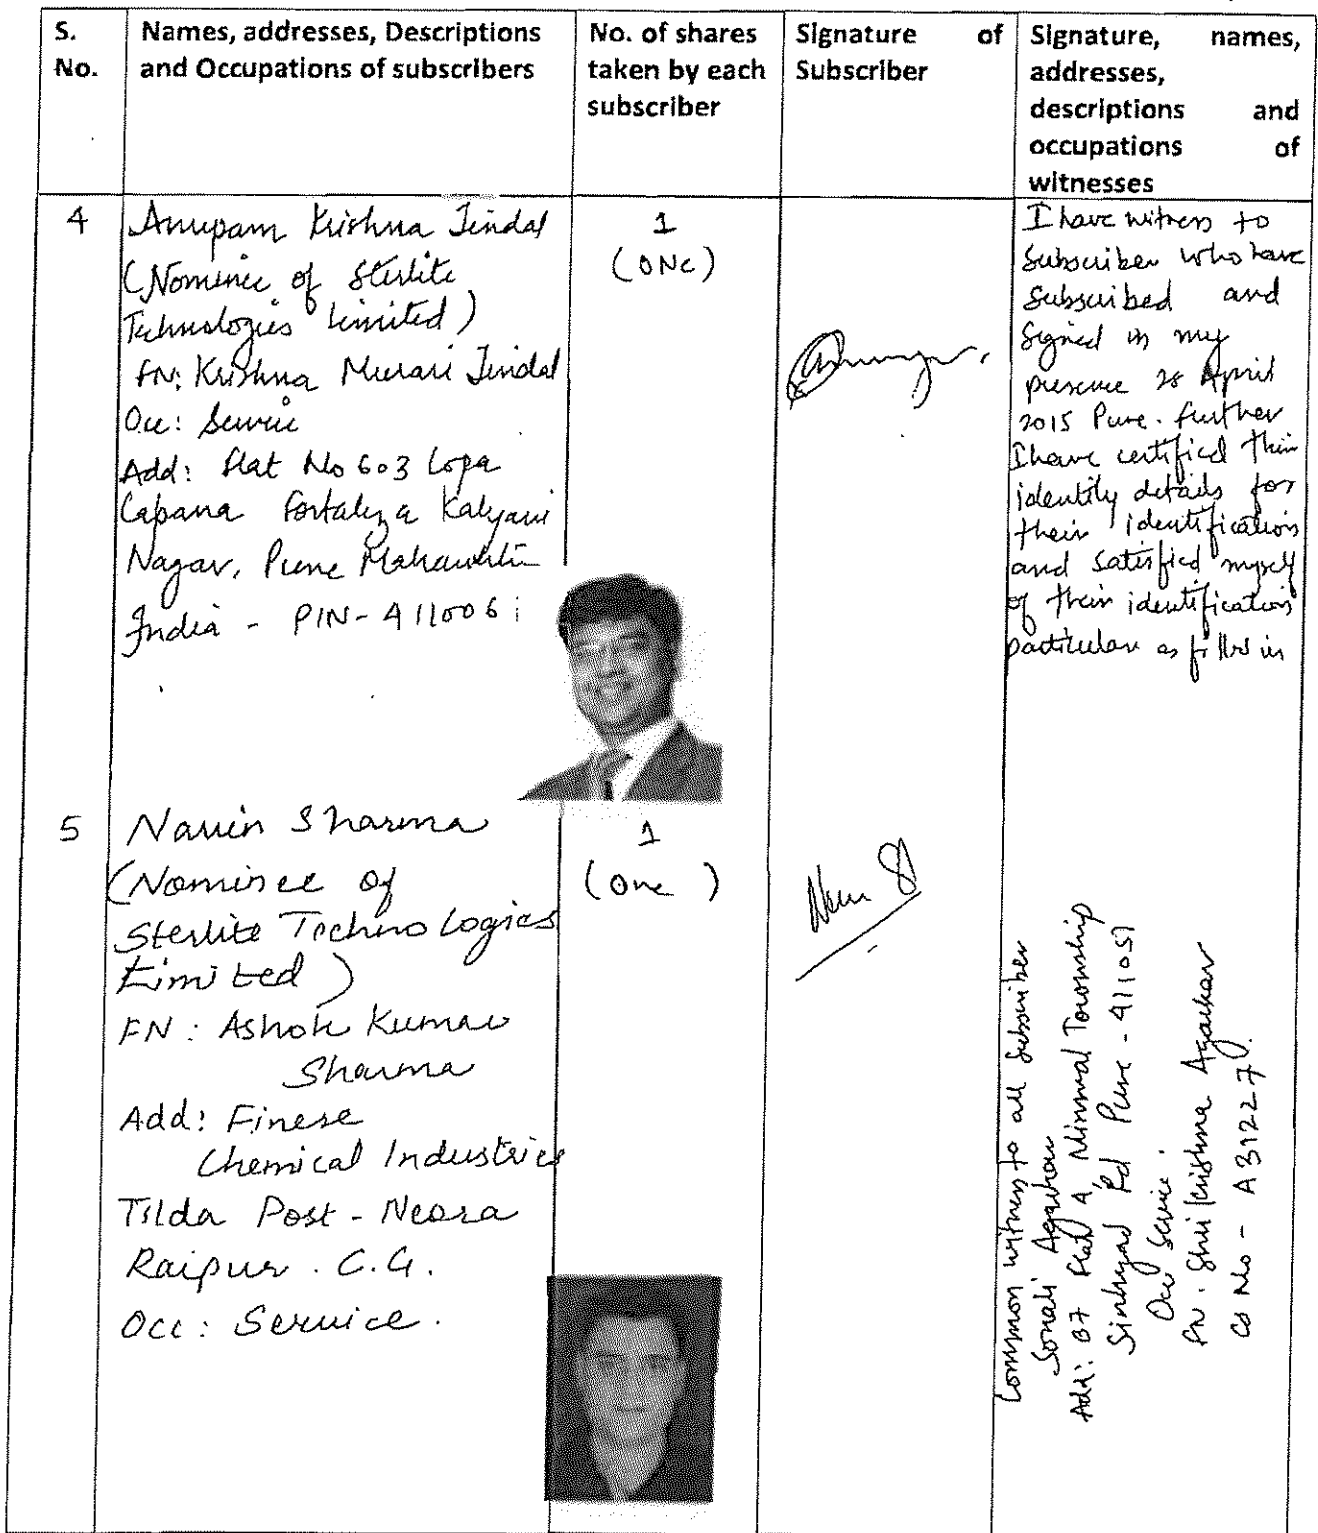 S. No.
Names, addresses, Descriptions
and Occupations of subscribers
No. of shares
taken by each
subscriber
Signature of
Subscriber
Signature, names,
addresses,
descriptions and
occupations of
witnesses
4
Anupam Krishna Jindal
(Nominee of Sterlite
Technologies Limited)
FN: Krishna Murari Jindal
Occ: Service
Add: Flat No 603 Lopa
Capana Fortaliza Kalyani
Nagar, Pune Maharashtra
India - PIN-411006
1
(ONE)
I have witness to
Subscriber who have
Subscribed and
Signed in my
presence 28 April
2015 Pune. further
I have certified their
identity details for
their identification
and satisfied myself
of their identification
particulars as filled in
5
Navin Sharma
(Nominee of
Sterlite Technologies
Limited)
FN: Ashok Kumar
Sharma
Add: Finese
Chemical Industries
Tilda Post - Neora
Raipur. C.G.
Occ: Service.
1
(One)
Common witness to all Subscriber
Sonali Agashar
Add: B7 Flat 4 Township
Rd Pune - 411051
Occ Service.
FN. Shri Krishna Agashar
CS No - A31227